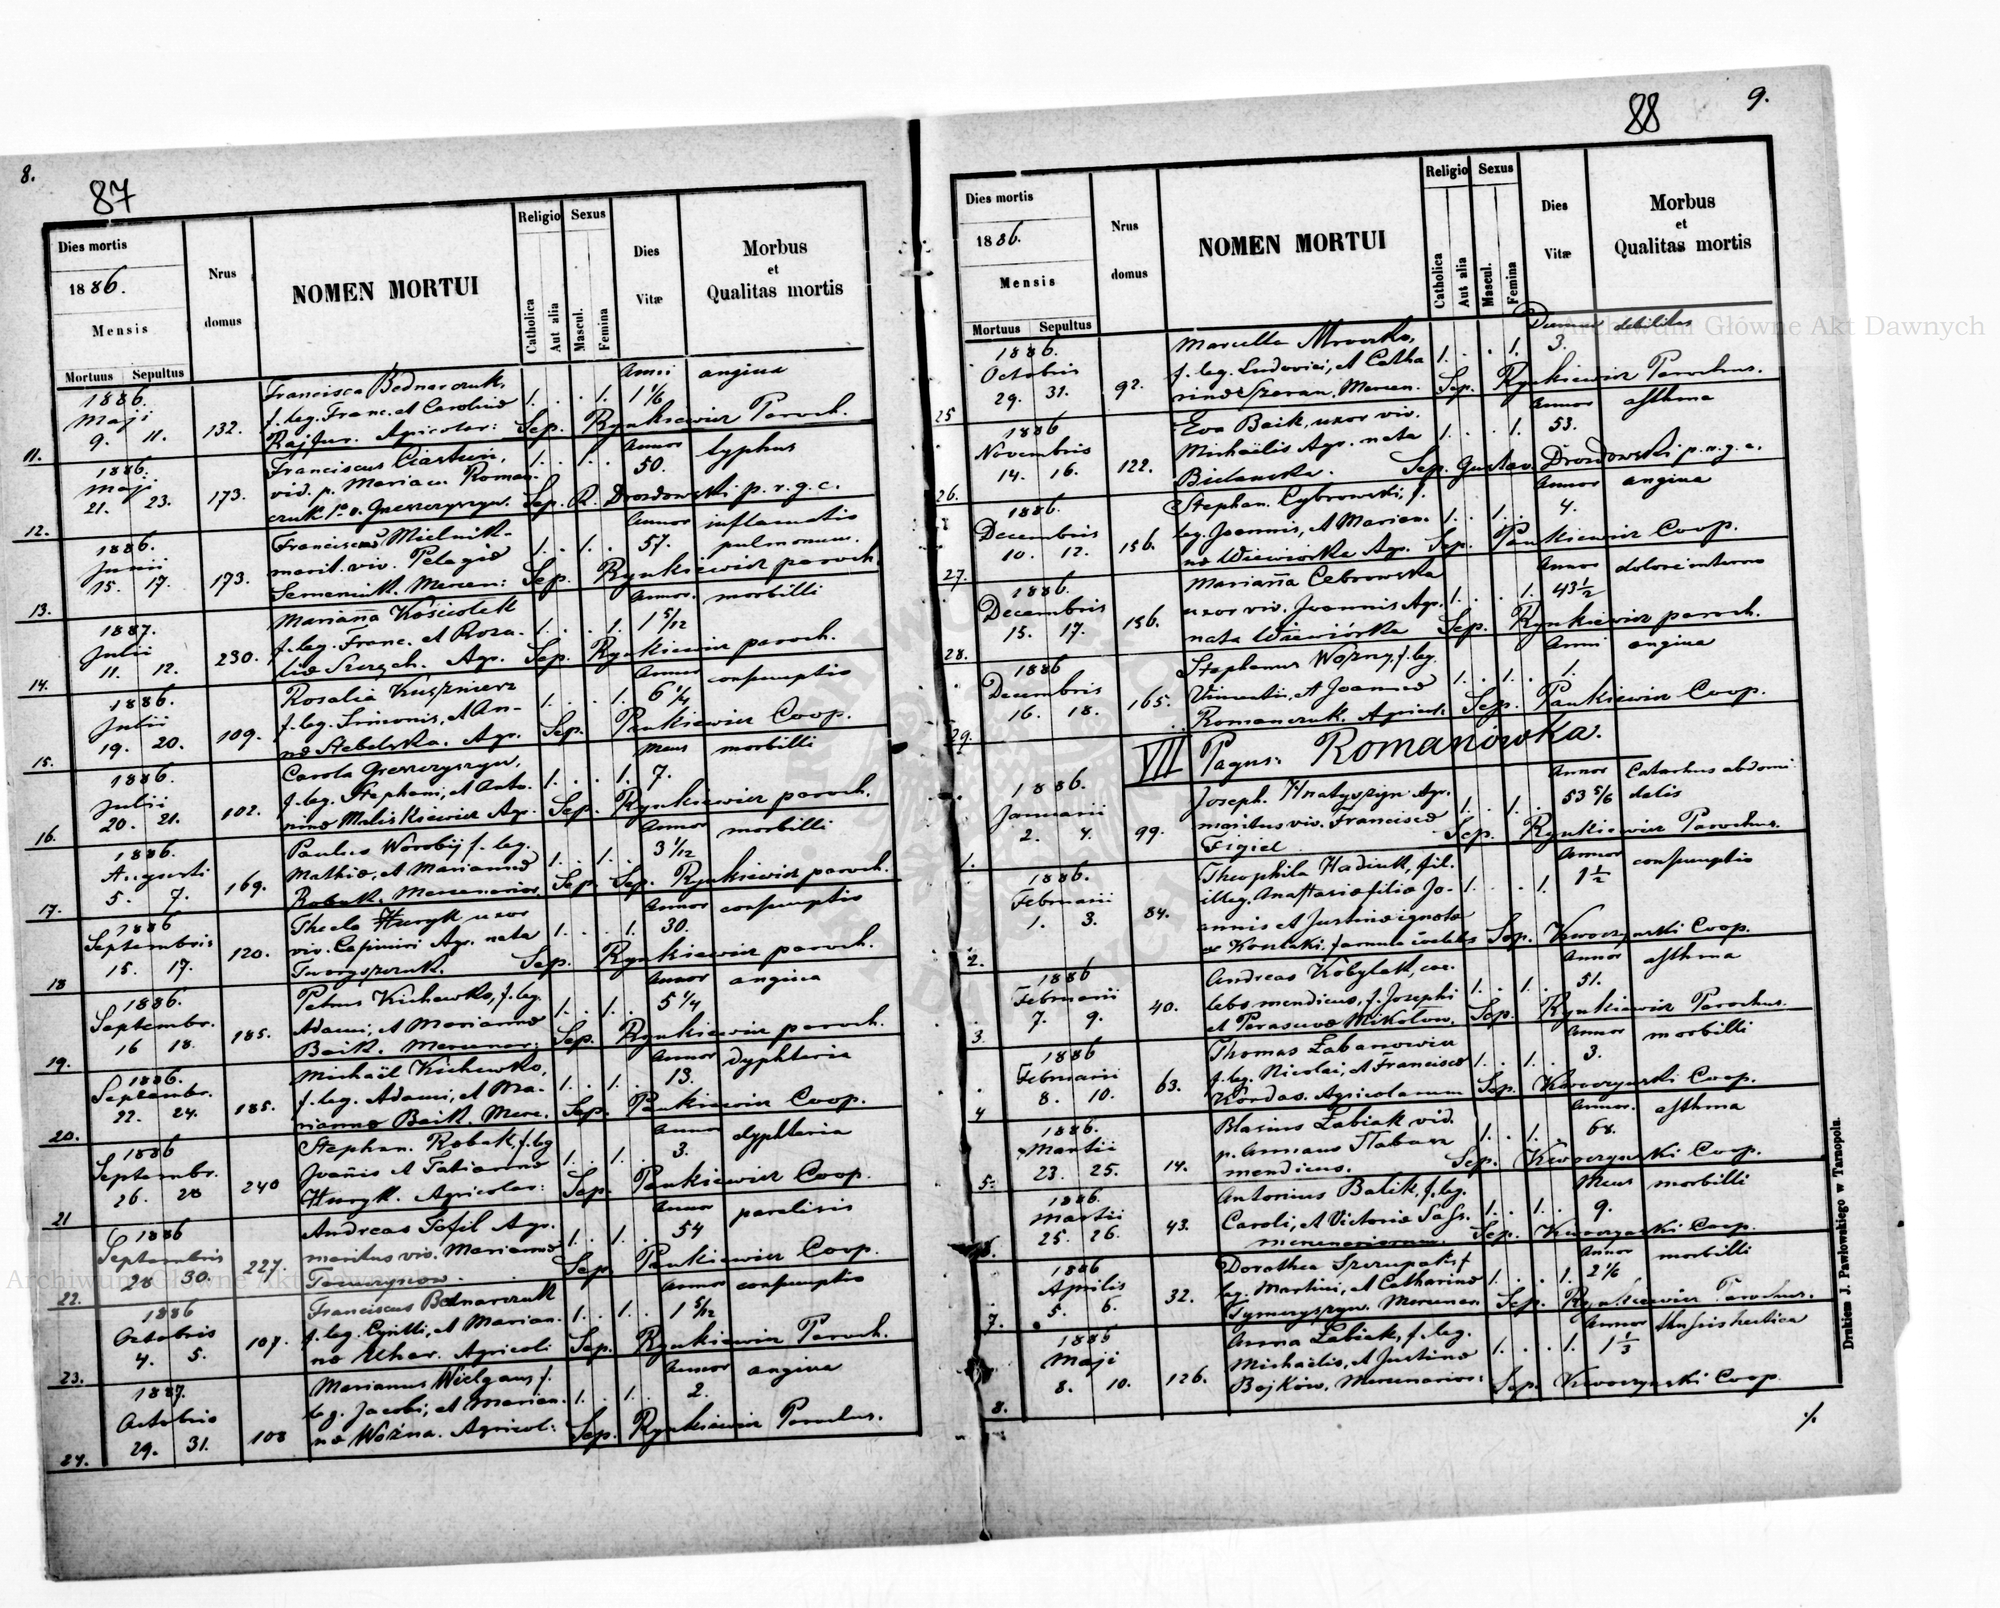 8.
87
Dies mortis
1886.
Mensis
Mortuus Sepultus
Nrus
domus
NOMEN MORTUI
Religio
Catholica
Aut alia
Sexus
Mascul.
Femina
Dies
Vitæ
Morbus
et
Qualitas mortis
1886. Francisca Bednarczuk, Anni angina
Maji f. leg. Franc. et Carolinæ 1. . . 1. 1 1/6
11. 9. 11. 132. Agricolar: Sep. Rynkiewicz Paroch.
1886. Franciscus Annor typhus
Maji vid. p. Mariam Roman- 1. . 1. . 50.
12. 21. 23. 173. czuk Sep. R. Drozdowski p. r. g. c.
1886. Franciscus Mielnik Annor inflamatio
Junii marit. viv. Pelagiæ 1. . 1. . 57. pulmonum.
13. 15. 17. 173. Semeniuk. Mercen: Sep. Rynkiewicz paroch.
1887. Marianna Kościołek Annor. morbilli
Julii f. leg. Franc. et Rosa- 1. . . 1. 1 5/12
14. 11. 12. 230. liæ Agr. Sep. Rynkiewicz paroch.
1886. Rosalia Kuśznierz Annor consumptio
Julii f. leg. Simonis, et An- 1. . . 1. 6 1/4
15. 19. 20. 109. næ Stebelska. Agr. Sep. Pankiewicz Coop.
1886. Carola Mens morbilli
Julii f. leg. Stephani, et Anto- 1. . . 1. 7.
16. 20. 21. 102. ninæ Agr. Sep. Rynkiewicz paroch.
1886. Paulus Worobij f. leg. Annor morbilli
Augusti Mathiæ, et Mariannæ 1. . 1. . 3 1/12
17. 5. 7. 169. Robak. Mercenarior. Sep. Sep. Rynkiewicz paroch.
1886 Thecla Huryk uxor Annor consumptio
Septembris viv. Casimiri Agr. nata 1. . . 1. 30.
18 15. 17. 120. Sep. Rynkiewicz paroch.
1886. Petrus Kichewko, f. leg. Annor angina
Septembr. Adami, et Mariannæ 1. . 1. . 5 1/4
19. 16 18. 185. Baik. Mercenar: Sep. Rynkiewicz paroch.
1886. Michaël Kichewko, Annor dyphteria
Septembr. f. leg. Adami, et Ma- 1. . 1. . 13.
20. 22. 24. 185. riannæ Baik. Merc. Sep. Pankiewicz Coop.
1886 Stephan. Robak, f. leg Annor dyphteria
Septembr. Joañis et Tatiannæ 1. . 1. . 3.
21 26. 28 240 Huryk. Agricolar: Sep. Pankiewicz Coop.
1886 Andreas Tofil Agr. Annor paralisis
Septembris maritus viv. Mariannæ 1. . 1. . 54
22. 28 30. 227. Sep. Pankiewicz Coop.
1886 Franciscus Bednarczuk Annor consumptio
Octobris f. leg. Cyrilli, et Marian- 1. . 1. . 1 5/12
23. 4. 5. 107. næ Uhar. Agricoli Sep. Rynkiewicz Paroch.
1887. Marianus Wielgaus f. Annor angina
Octobris leg. Jacobi, et Marian- 1. . 1. . 2.
24. 29. 31. 108 næ Woźna. Agricol: Sep. Rynkiewicz Parochus.
88
9.
Dies mortis
1886.
Mensis
Mortuus Sepultus
Nrus
domus
NOMEN MORTUI
Religio
Catholica
Aut alia
Sexus
Mascul.
Femina
Dies
Vitæ
Morbus
et
Qualitas mortis
1886. Marcella Mroczko, Dierum debilitas
Octobris f. leg. Ludovici, et Catha 1. . . 1. 3.
25 29. 31. 92. rinæ Szeran. Mercen. Sep. Rynkiewicz Parochus.
1886 Eva Baik, uxor viv. Annor asthma
Novembris Michaëlis Agr. nata 1. . . 1. 53.
26. 14. 16. 122. Bielawska. Sep. Gustav. Drozdowski p. r. g. c.
1886. Stephan. Cybrowski, f. Annor angina
Decembris leg. Joannis, et Marian- 1. . 1. . 4.
27. 10. 12. 156. næ Wiewiorka Agr. Sep. Pankiewicz Coop.
1886. Marianna Cebrowska Annor dolore interno
Decembris uxor viv. Joannis Agr. 1. . . 1. 43 1/2
28. 15. 17. 156. nata Wiewiórka Sep. Rynkiewicz paroch.
1886 Stephanus Woźny, f. leg. Anni angina
Decembris Vincentii, et Joannæ 1. . 1. . 1.
29. 16. 18. 165. Romanczuk. Agricol. Sep. Pankiewicz Coop.
VII Pagus: Romanówka.
1886. Joseph. Hnatyszyn Agr. Annor Catarhus abdomi-
Januarii maritus viv. Franciscæ 1. . 1. . 53 5/6 dalis
1. 2. 4. 99. Figiel Sep. Rynkiewicz Parochus.
1886. Theophila Hadiuk, fil. Annor consumptio
Februarii illeg. Anastasiæ filiæ Jo- 1. . . 1. 1 1/2
1. 3. 84. annis et Justinæ ignotæ
2. famula cœlebs Sep. Kwoczyński Coop.
1886 Andreas Kobylak, cæ- Annor asthma
Februarii lebs mendicus, f. Josephi 1. . 1. . 51.
3. 7. 9. 40. et Parasevæ Mikołow. Sep. Rynkiewicz Parochus.
1886 Thomas Łabanowicz Annor morbilli
Februarii f. leg. Nicolai, et Franciscæ 1. . 1. . 3.
4 8. 10. 63. Kordas. Agricolarum Sep. Kwoczyński Coop.
1886. Blasius Łabiak vid. Annor. asthma
Martii p. Annam 1. . 1. . 68.
5. 23. 25. 14. mendicus. Sep. Kwoczyński Coop.
1886. Antonius Batik, f. leg. Mens morbilli
Martii Caroli, et Victoriæ 1. . 1. . 9.
6. 25. 26. 43. mercenariorum. Sep. Kwoczyński Coop.
1886 Dorothea f Annor morbilli
Aprilis leg. Martini, et Catharinæ 1. . . 1. 2 1/6
7. 5. 6. 32. Tymczyszyn. Mercenar. Sep. Rynkiewicz Parochus.
1886 Anna Łabiak, f. leg. Annor thysis hectica
Maji Michaëlis, et Justinæ 1. . . 1. 1 1/3
8. 8. 10. 126. Bojków. Mercenarior: Sep. Kwoczyński Coop.
Drukiem J. Pawłowskiego w Tarnopolu.
Archiwum Główne Akt Dawnych
Archiwum Główne Akt Dawnych